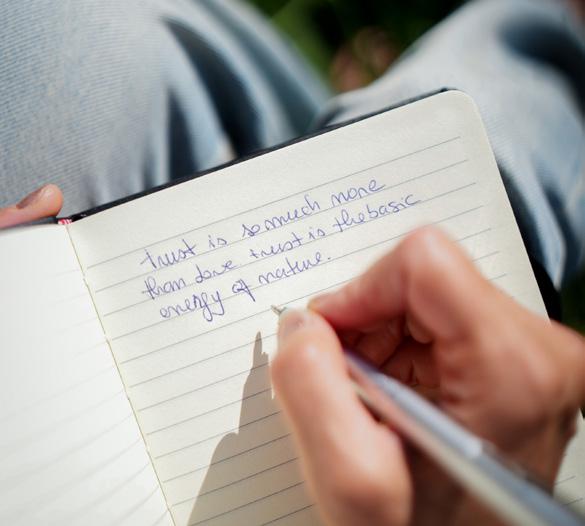 trust is so much more
than love trust is the basic
energy of nature.